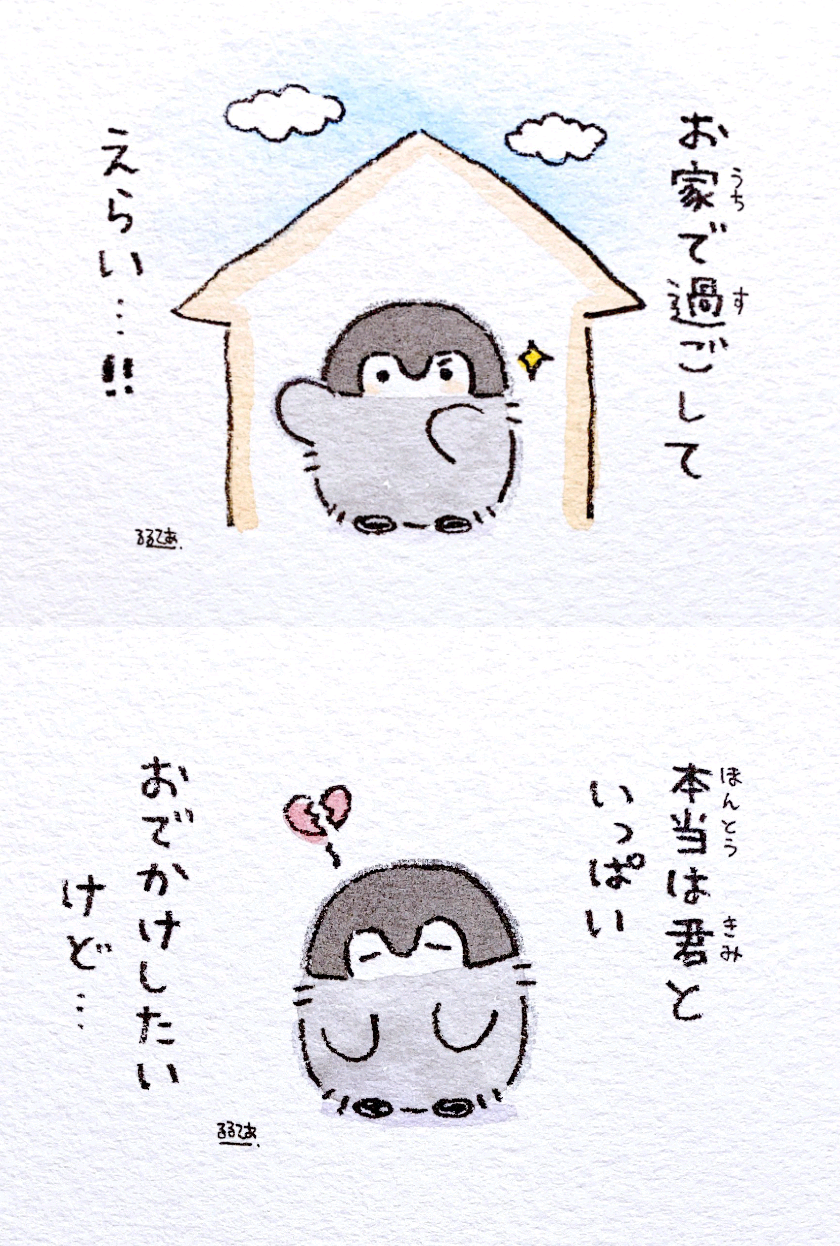 お家で過ごして
うち
す
えらい…!!
るるてあ.
本当は君と
ほんとう
きみ
いっぱい
おでかけしたい
けど…
るるてあ.